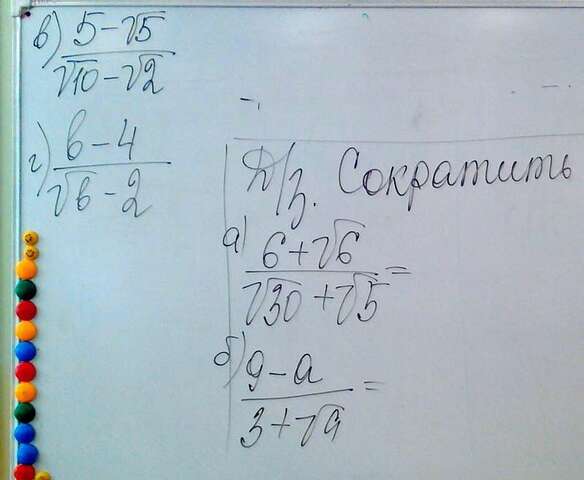 в) 5-√5
√10-√2
г) b-4
√b-2
Д/з. Сократить
а) 6+√6
√30+√5 =
б) 9-a
3+√a =